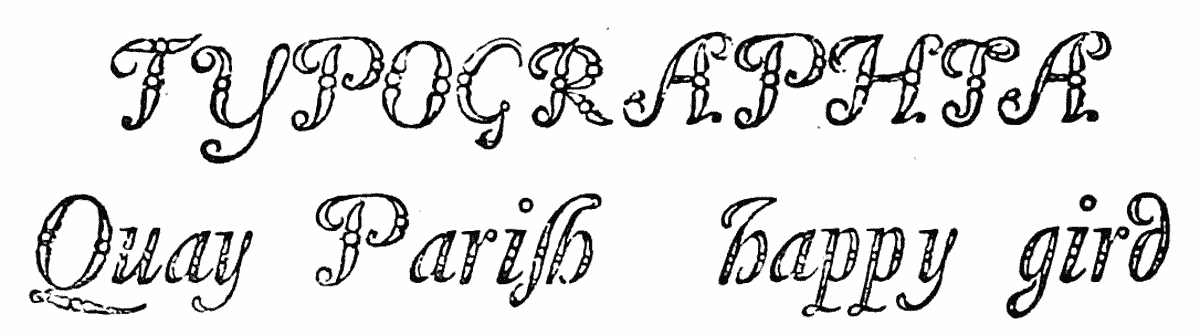 TYPOGRAPHIA
Quay Pariſh happy gird